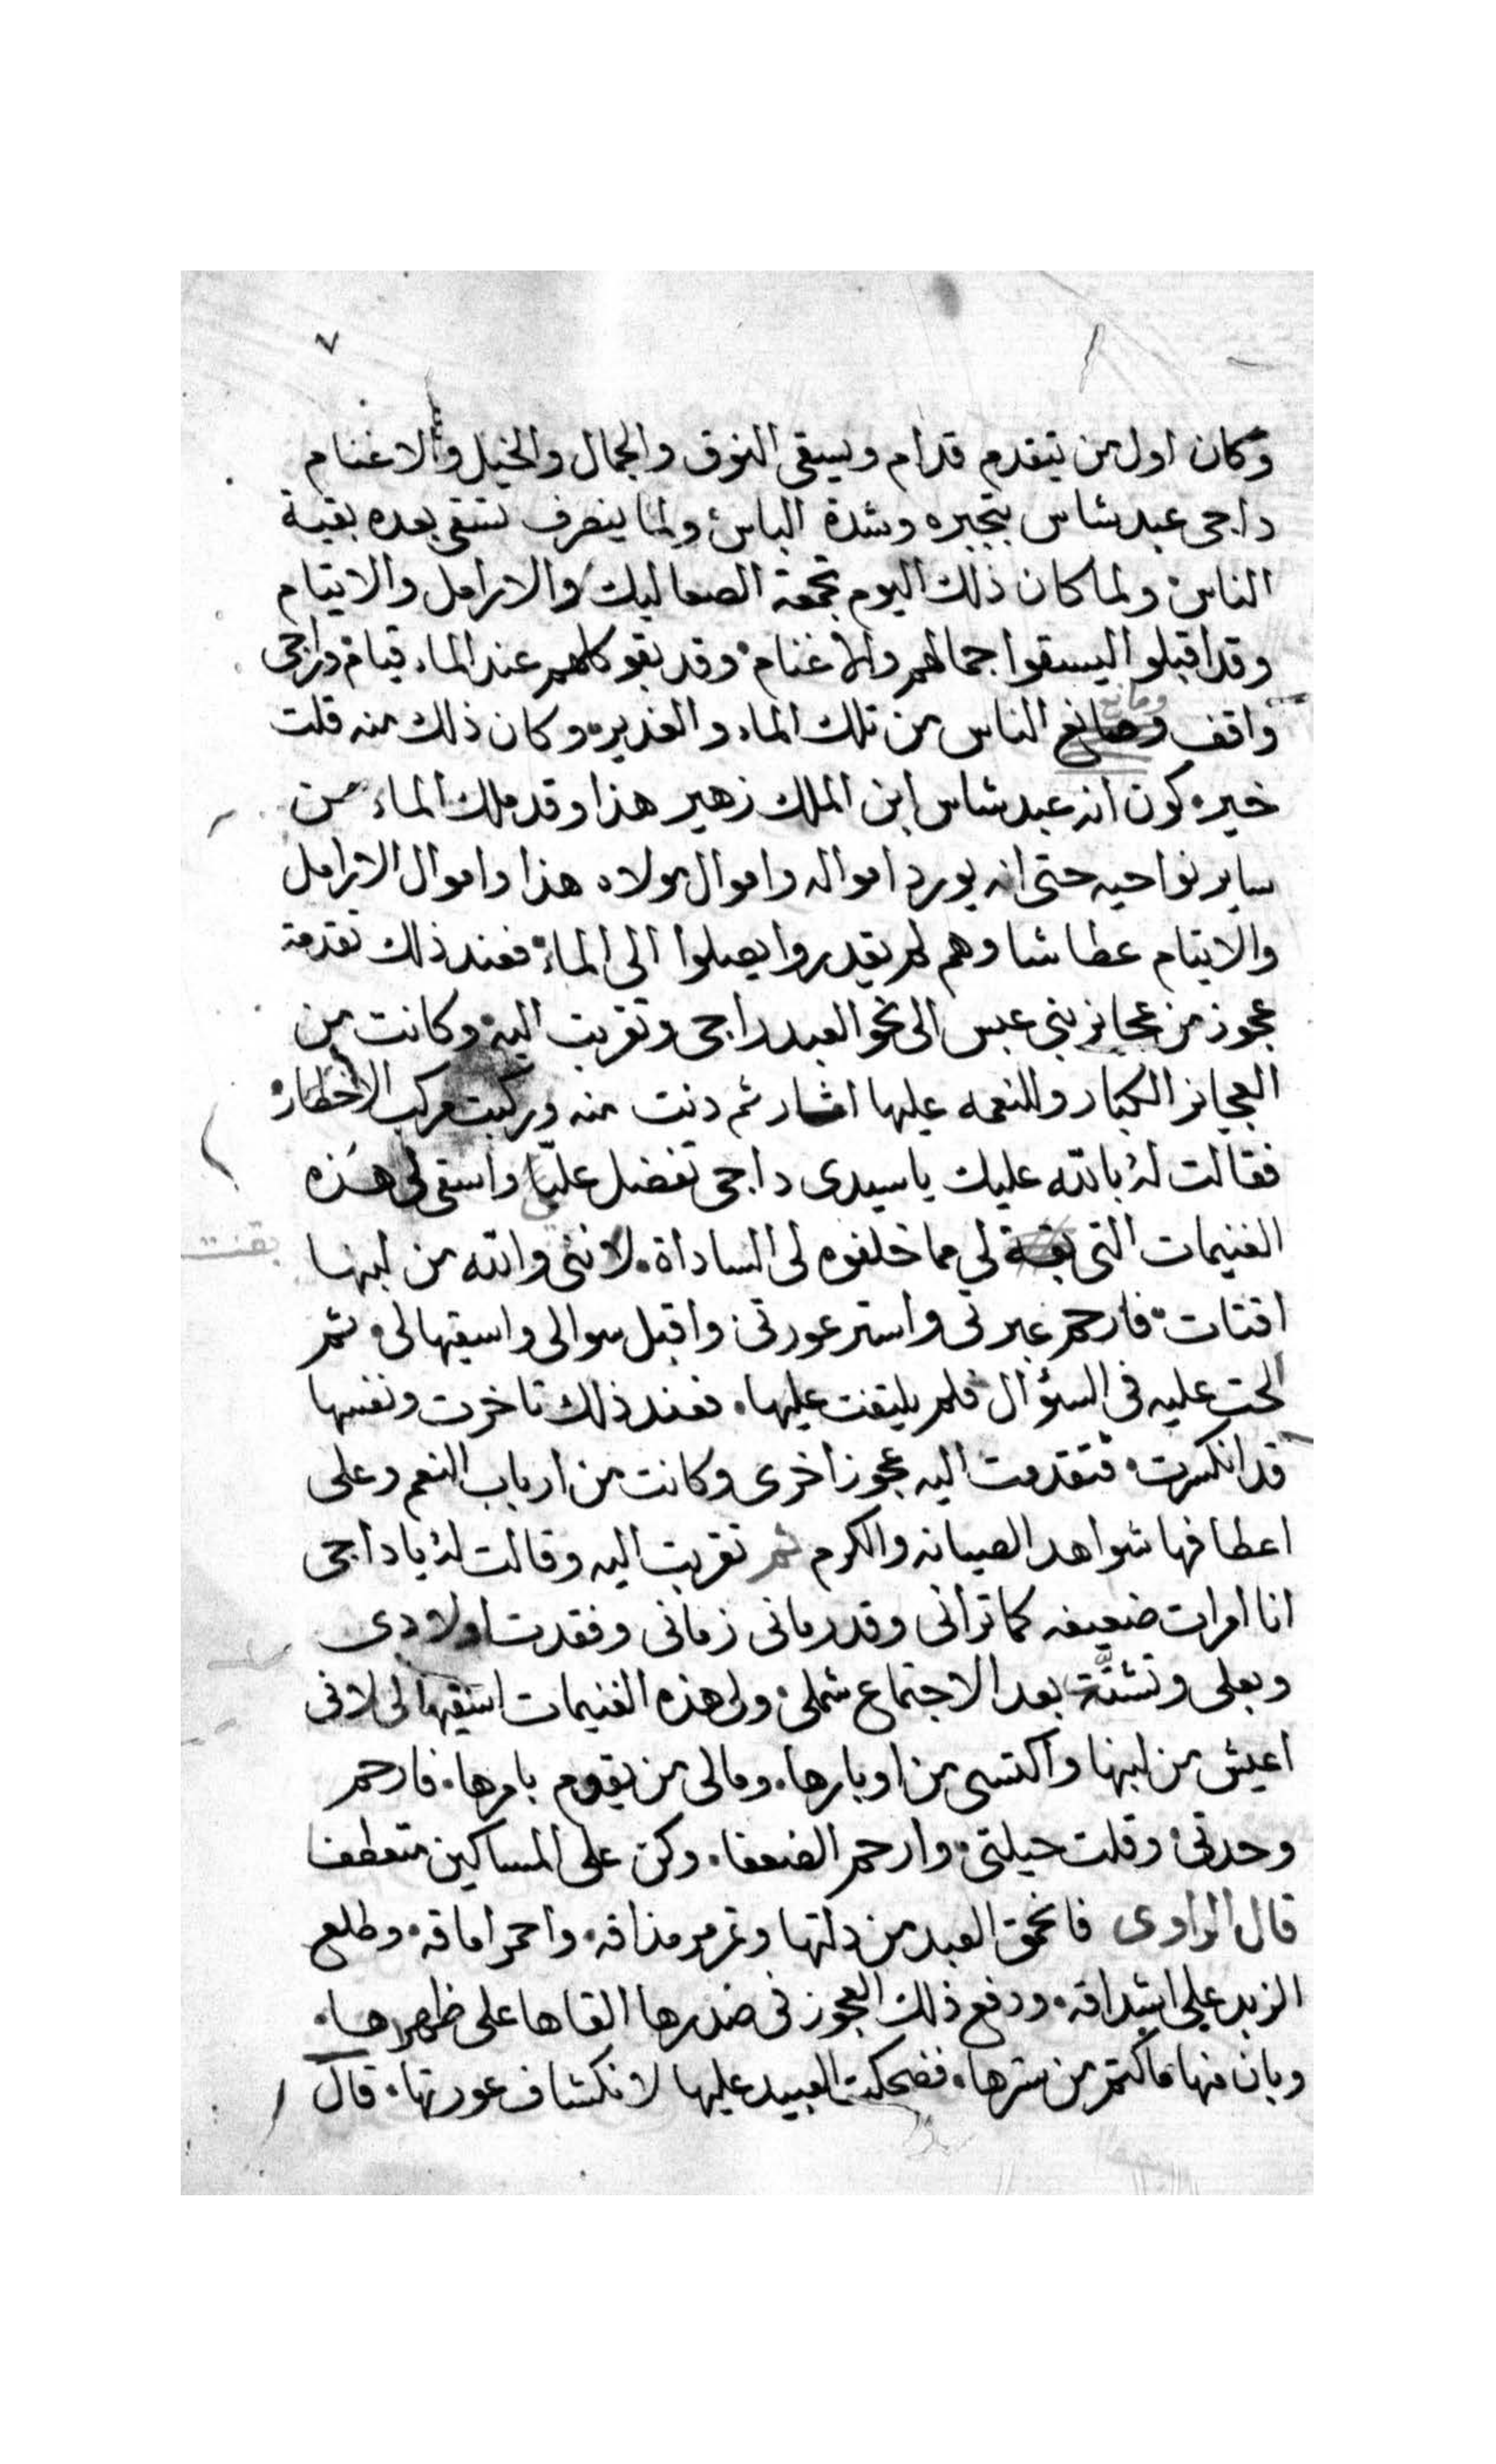 ٧
وكان اول من يتقدم قدام ويسقى النوق والجمال والخيل والاغنام
داجى عبد شاس بتجبره وشدة الباس ولما ينصرف تسقى بعده بقية
الناس ولما كان ذلك اليوم تجمعة الصعاليك والارامل والايتام
وقد اقبلو اليسقوا جمالهم والاغنام وقد بقو كلهم عند الماء قيام وداجى
ومانع
واقف وصانع الناس من تلك الماء والغدير وكان ذلك منه قلت
خيره كون انه عبد شاس ابن الملك زهير هذا وقد ملك الماء من
ساير نواحيه حتى انه يورد امواله واموال مولاه هذا واموال الارامل
والايتام عطاشا وهم لم يقدروا يصلوا الى الماء فعند ذلك تقدمة
عجوز من عجايز بنى عبس الى نحو العبد داجى وتقربت اليه وكانت من
العجايز الكبار وللنعمه عليها اثار ثم دنت منه وركبت مركب الاخطار
فقالت له بالله عليك ياسيدى داجى تفضل عليا واسقى لى هذه
الغنيمات التى بقة لي مما خلفوه لى الساداة لاننى والله من لبنها
بقت
اقتات فارحم عبرتى واستر عورتى واقبل سوالى واسقيها لى ثم
الحت عليه فى السؤال فلم يلتفت عليها فعند ذلك تاخرت ونفسها
قد انكسرت فتقدمت اليه عجوز اخرى وكانت من ارباب النعم وعلى
اعطافها شواهد الصيانه والكرم ثم تقربت اليه وقالت له ياداجى
انا امرات ضعيفه كما ترانى وقد رمانى زمانى وفقدت اولادى
وبعلى وتشتّة بعد الاجتماع شملى ولى هذه الغنيمات اسقيها لى لانى
اعيش من لبنها واكتسى من اوبارها ومالى من يقوم بامرها فارحم
وحدتى وقلت حيلتى وارحم الضعفا وكن على المساكين متعطفا
قال الراوى فانحمق العبد من ذلتها وتمرمر مذاقه واحمر اماقه وطلع
الزبد على اشداقه ودفع ذلك العجوز فى صدرها القاها على ظهرها
وبان منها ما اكتتم من سترها فضحكت العبيد عليها لانكشاف عورتها قال